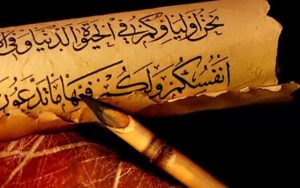 نحن أولياؤكم في الحياة الدنيا وفي
أنفسكم ولكم فيها ما تدعون